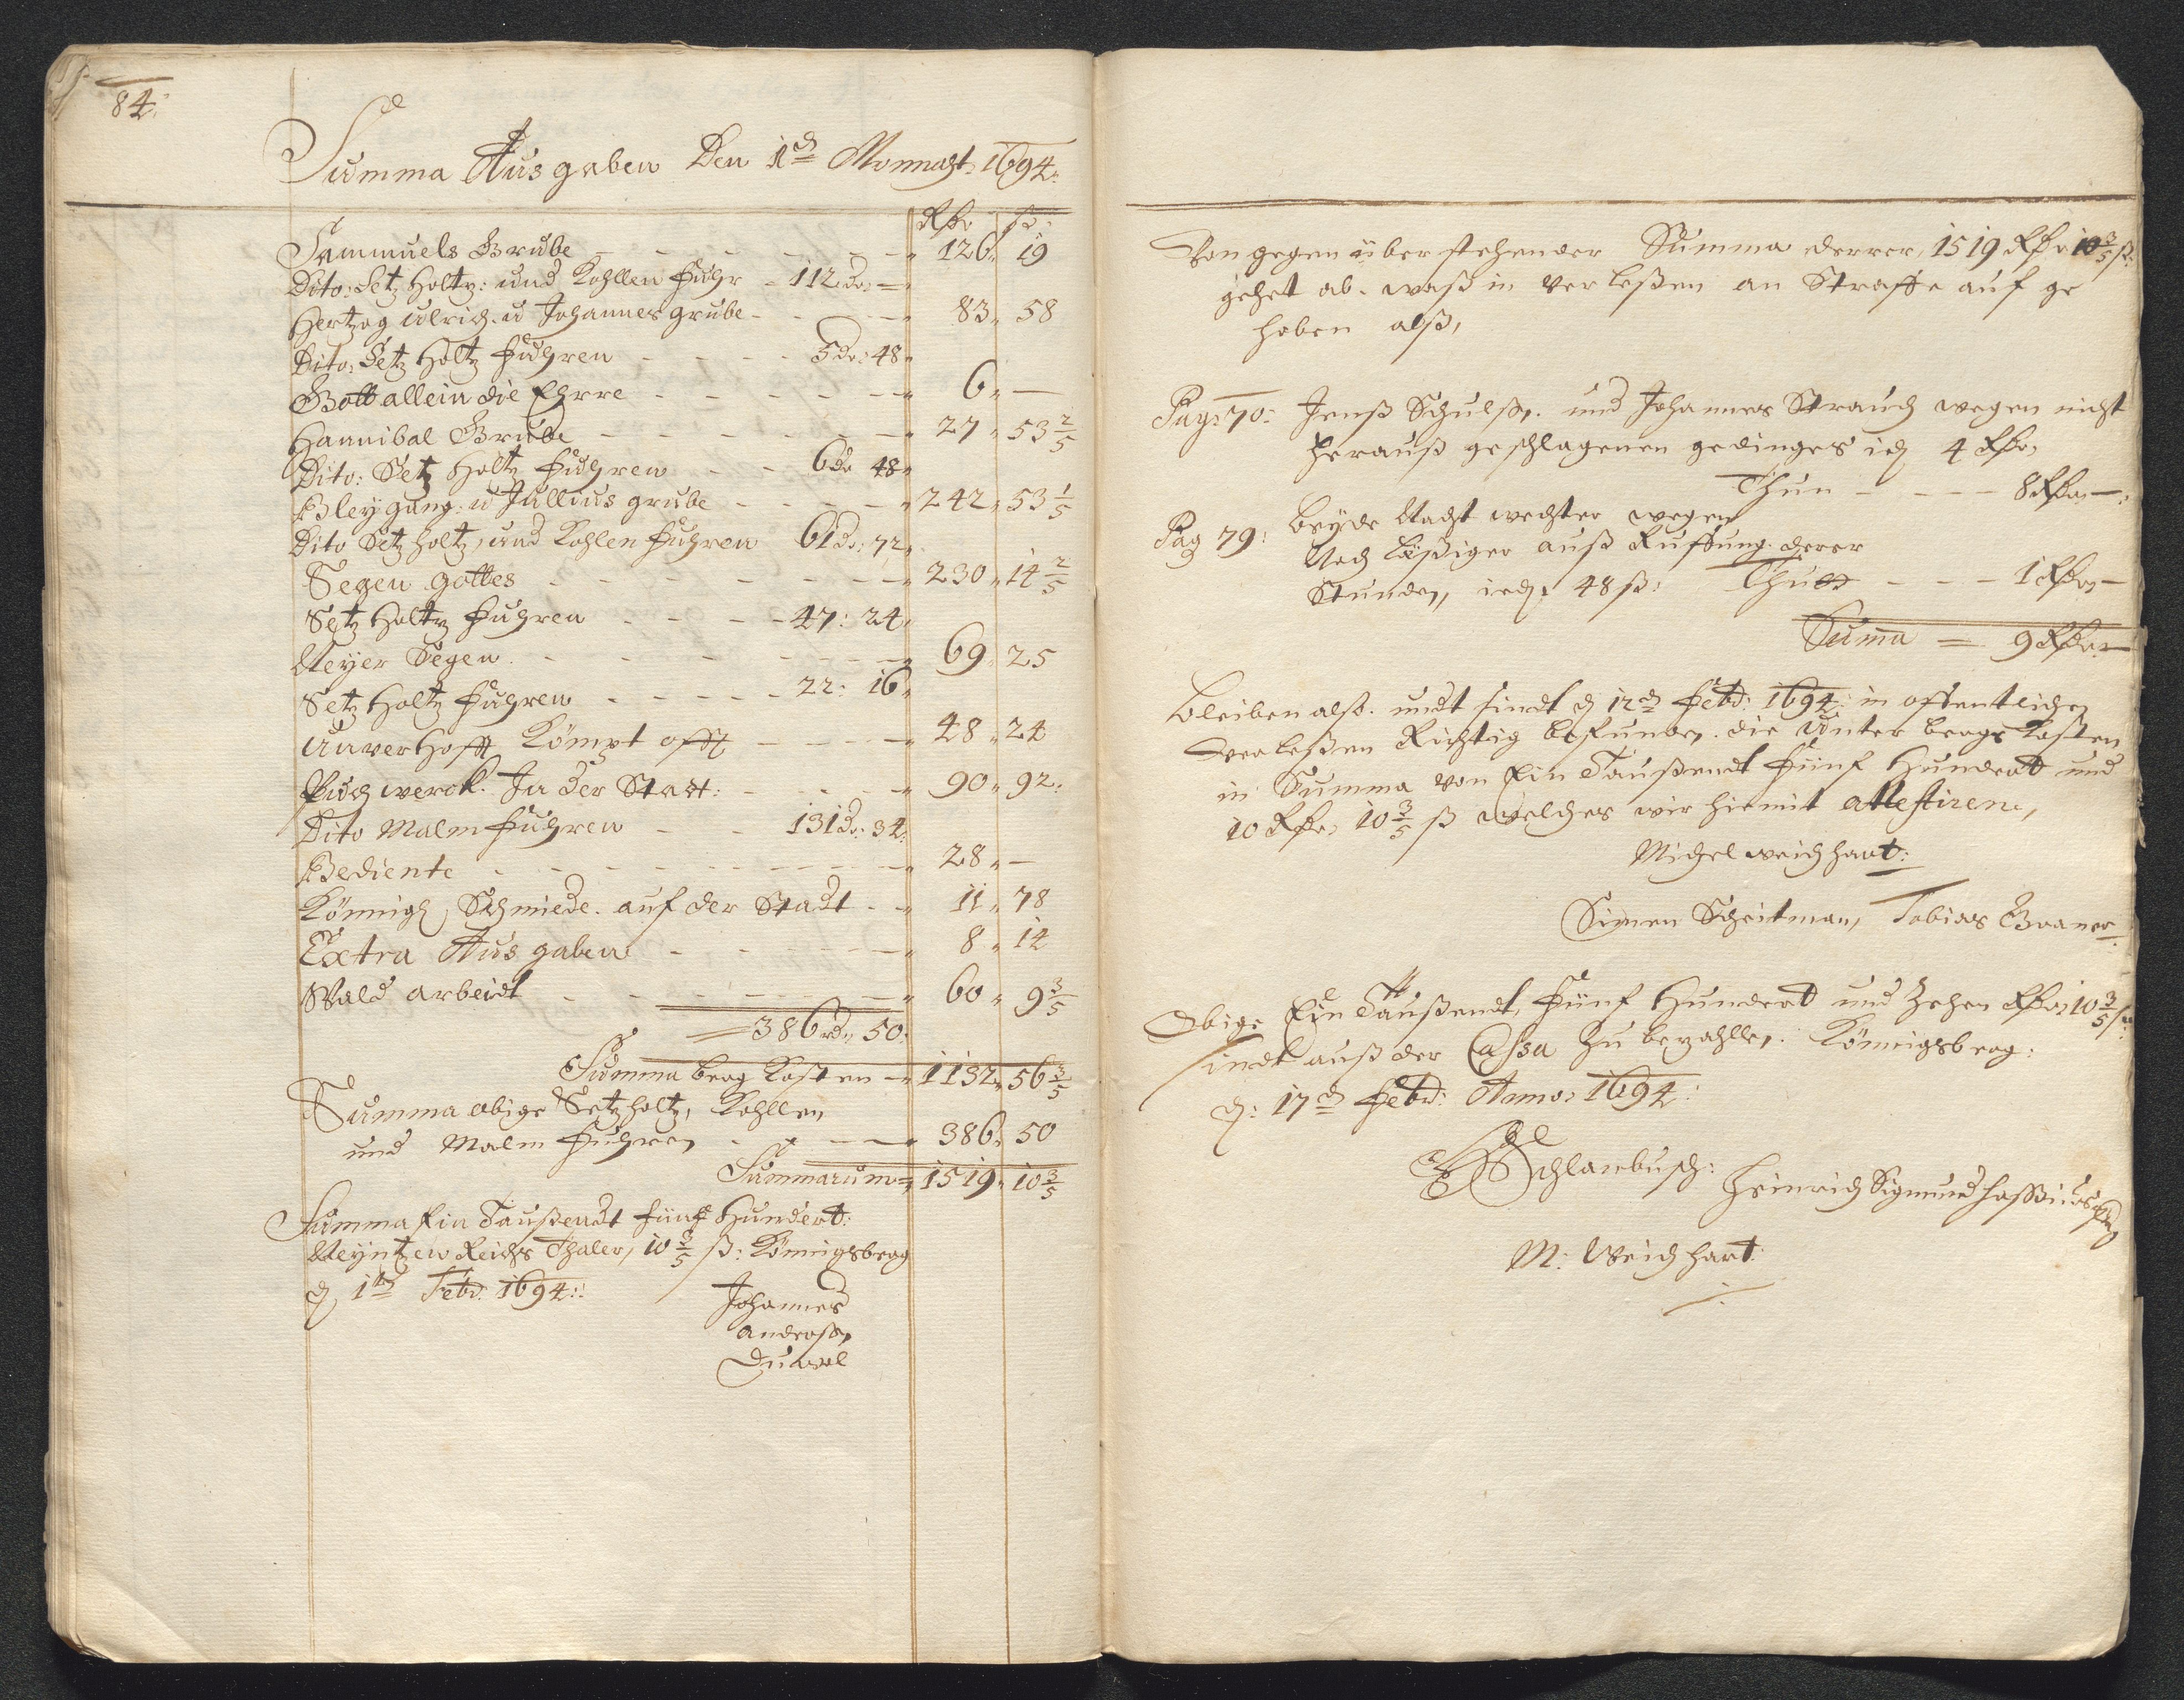 84:
Summa Ausgaben Den 1ᵗ Monnaht: 1694:
Rthr ß:
Sammuels Grube - - - - - 126 19
Dito: Setz Holtz: und Kohllen fuhr - 112 dr: =
Hertzog Ulrich u Johannes grube - - - 83 58
Dito: Setz Holtz fuhren - - - - 5 dr: 48
Gott allein die Ehrre - - - - - - 6 —
Hannibal Grube - - - - - - 27 53 2/5
Dito: Setz Holtz fuhren - - 6 dr 48
Bleygang: u Jullius grube - - - - 242 53 1/5
Dito Setz holtz, und Kohlen fuhren 61 dr: 72
Segen gottes - - - - - - 230 14 2/5
Setz Holtz fuhren - - - - 47: 24
Neyer Segen - - - - - - 69 25
Setz Holtz fuhren - - - - - 22: 16
Unverhofft Kömpt offt - - - - 48 24
Puch werck. In der Statt: - - - - 90 92:
Dito Malm fuhren - - 131 dr: 34:
Bediente - - - - - - - - 28 —
Könnigl Schmiede. auf der Stadt - - 11 78
Extra Ausgaben - - - - - 8 14
Wald arbeidt - - - - - - - 60 9 3/5
= 386 rd 50:
Summa berg Kosten - 1132 56 3/5
Summa obige Setzholtz, Kohllen
und Malm fuhren - - - - 386 50
Summarum = 1519 10 3/5
Summa Ein Taußendt fünff Hundert:
Neyntzen Reichs Thaler, 10 3/5 ß: Könnigsberg
d 1ᵗ Febr: 1694:
Johannes
Andreß
Duwel
Von gegen über stehender Summa derrer 1519 Rthr 10 3/5 ß:
gehet ab. waß in Verleßen an Straffe auf ge
hoben alß,
Pag: 70: Jenß Schulß, und Johannes Strauch wegen nicht
herauß geschlagenen gedinges id 4 Rthr,
Thun - - - - 8 Rthr —:
Pag 79: Beyde Nacht wechter wegen
Nach läßiger auß Ruffung derer
Stunden, ied. 48 ß: Thutt - - - 1 Rthr —
Summa = 9 Rthr —
Bleiben alß. undt sindt d 12ᵗ Febr: 1694: in offentlichen
Verleßen Richtig befunden. die Unter bergs Kosten
in Summa von Ein Taußendt fünf Hundert und
10 Rthr, 10 3/5 ß welches wir hiemit attestiren,
Michel weichhart:
Simen Scheitman, Tobias
Obige Ein Taußendt, fünf Hundert und Zehen Rthr 10 3/5 ß:
sindt auß der Cassa zu bezahllen. Könnigsberg:
d: 17ᵗ Febr: Anno: 1694:
Schlanbusch: Heinrich Sigmund
M: Weichhart: